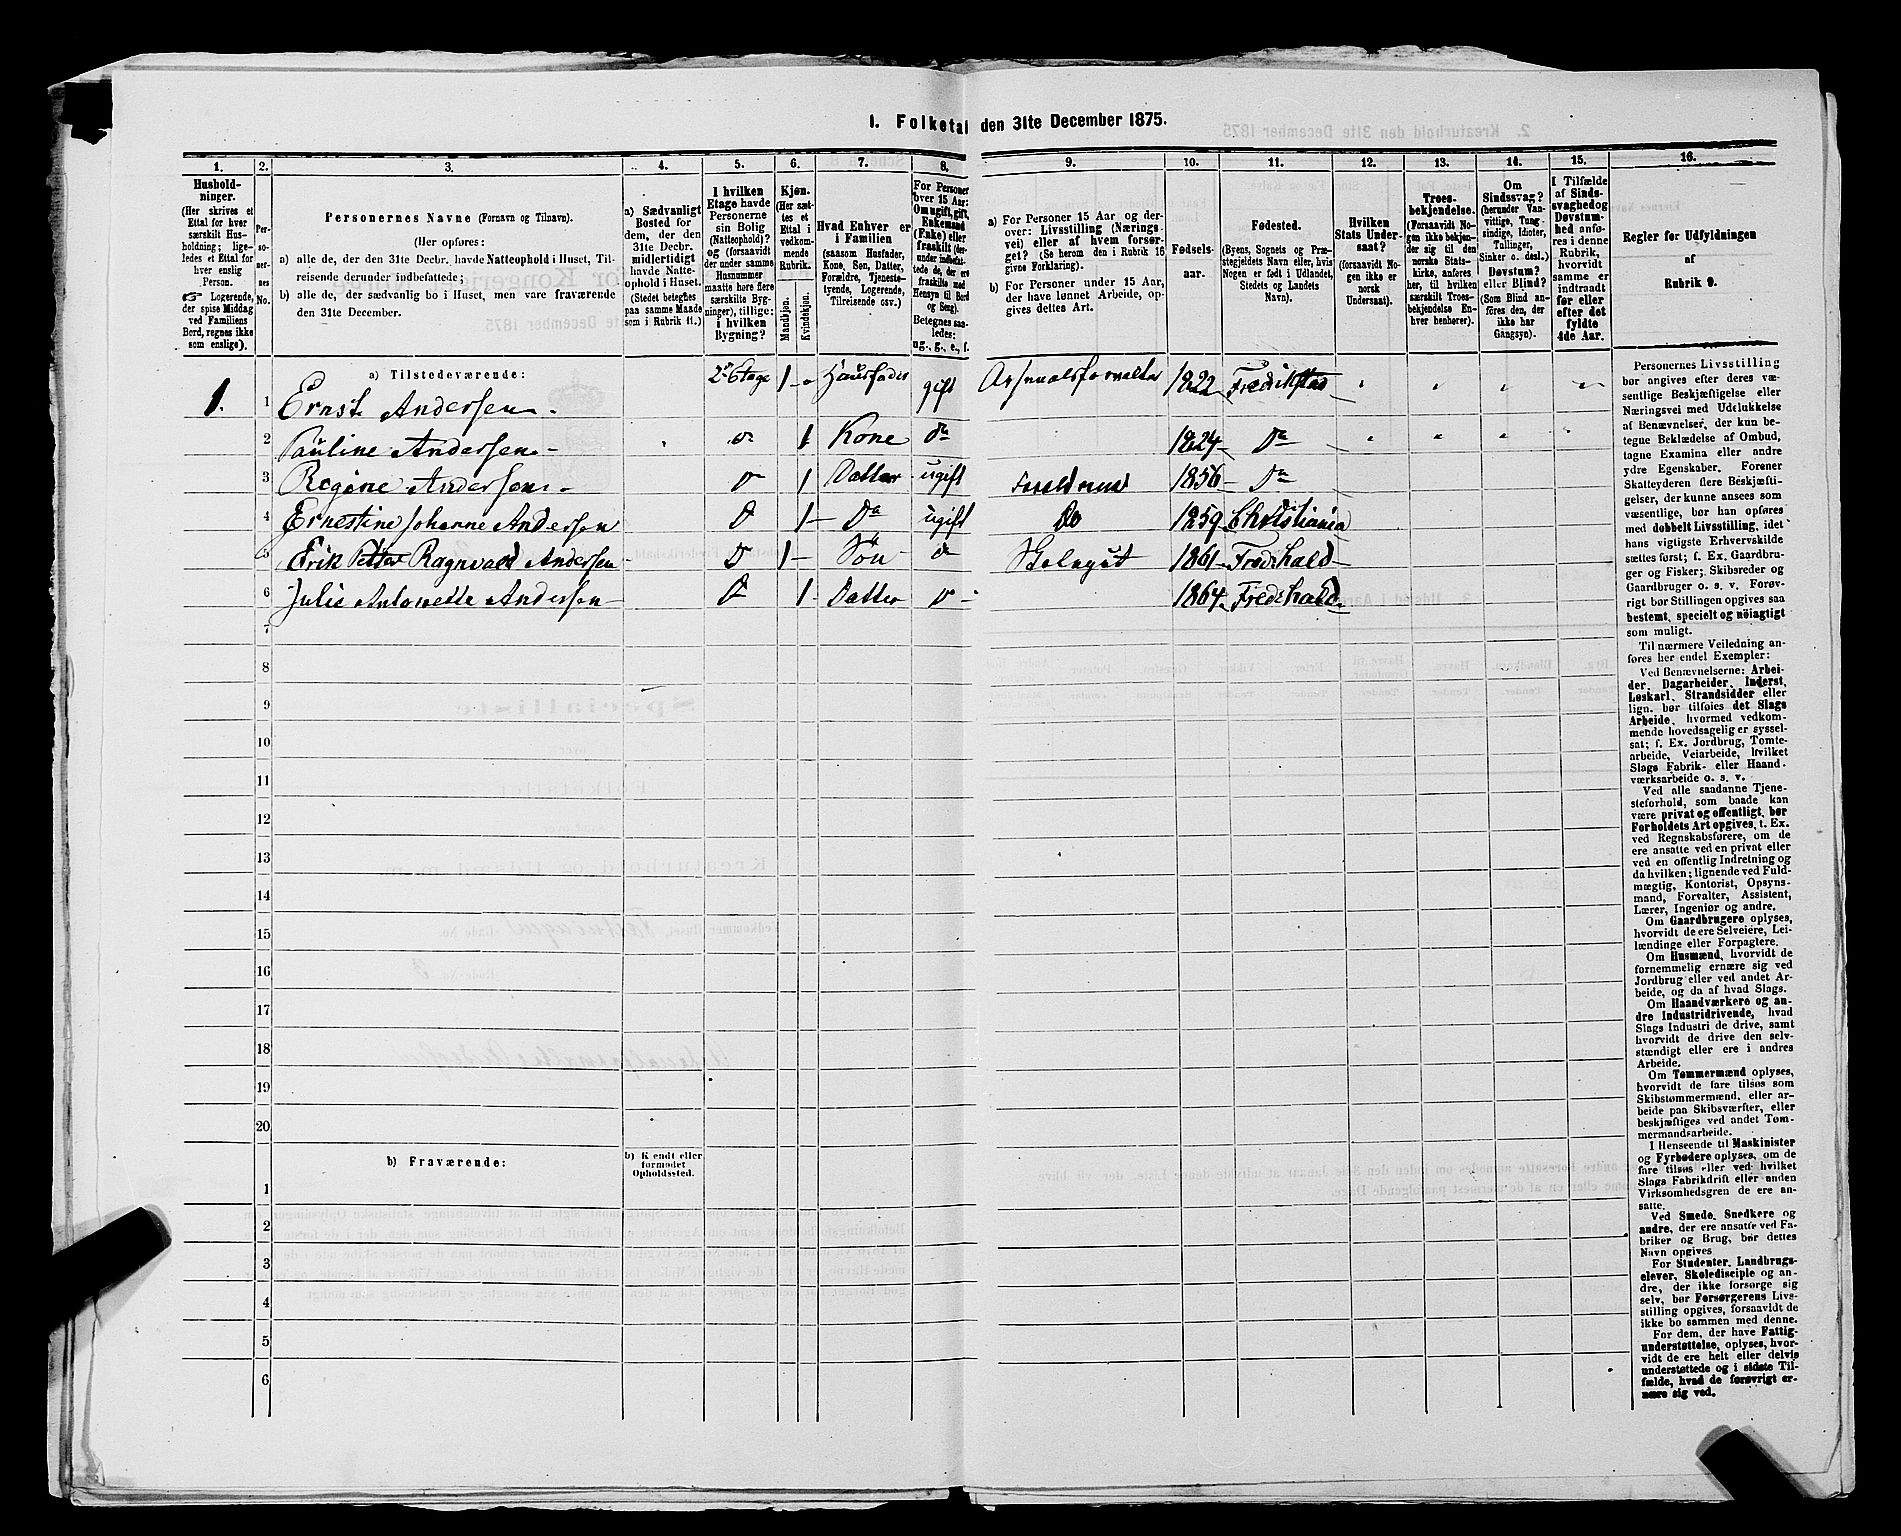 1. Folketal den 31te December 1875.
1. 2. 3. 4. 5. 6. 7. 8. 9. 10. 11. 12. 13. 14. 15. 16.
Hushold-
ninger.
(Her skrives et
Ettal for hver
særskilt Hus-
holdning; lige-
ledes et Ettal for
hver enslig
Person.
☞ Logerende,
der spise Middag
ved Familiens
Bord, regnes ikke
som enslige).
Per-
so-
ner-
nes
No.
Personernes Navne (Fornavn og Tilnavn).
(Her opføres:
a) alle de, der den 31te Decbr. havde Natteophold i Huset, Til-
reisende derunder indbefattede;
b) alle de, der sædvanlig bo i Huset, men vare fraværende
den 31te December.
a) Sædvanligt
Bosted for
dem, der den
31te Decbr.
midlertidigt
havde Natte-
ophold i Huset.
(Stedet betegnes
paa samme Maade
som i Rubrik 11.)
I hvilken
Etage havde
Personerne
sin Bolig
(Natteophold)?
og (forsaavidt
der under samme
Husnummer
maatte høre flere
særskilte Byg-
ninger), tillige:
i hvilken
Bygning?
Kjøn.
(Her sæt-
tes et
Ettal i
vedkom-
mende
Rubrik.
Mandkjøn.
Kvindekjøn.
Hvad Enhver er
i Familien
(saasom Husfader,
Kone, Søn, Datter,
Forældre, Tjeneste-
tyende, Logerende,
Tilreisende osv.)
For Personer
over 15 Aar:
Om ugift, gift,
Enkemand
(Enke) eller
fraskilt (der-
under indbefat-
tede de, der ere
fraskilte med
Hensyn til Bord
og Seng).
Betegnes saa-
ledes:
ug., g., e., f.
a) For Personer 15 Aar og der-
over: Livsstilling (Nærings-
vei) eller af hvem forsør-
get? (Se herom den i Rubrik 16
givne Forklaring).
b) For Personer under 15 Aar,
der have lønnet Arbeide, op-
gives dettes Art.
Fødsels-
aar.
Fødested.
(Byens, Sognets og Præ-
stegjeldets Navn eller, hvis
Nogen er født i Udlandet,
Stedets og Landets
Navn).
Hvilken
Stats Under-
saat?
(forsaavidt No-
gen ikke er
norsk
Undersaat).
Troes-
bekjendelse.
(Forsaavidt No-
gen ikke bekjen-
der sig til den
norske Stats-
kirke, anføres
her, til hvilken
særskilt Troes-
bekjendelse En-
hver henhører).
Om
Sindssvag?
(herunder Van-
vittige, Tung-
sindige, Idioter,
Tullinger,
Sinker o. desl.)
Døvstum?
eller Blind?
(Som Blind an-
føres den, der
ikke har
Gangsyn).
I Tilfælde
af Sinds-
svaghed og
Døvstum-
hed anfø-
res i denne
Rubrik,
hvorvidt
samme er
indtraadt
før eller
efter det
fyldte
4de Aar.
Regler for Udfyldningen
af
Rubrik 9.
a) Tilstedeværende:
1. 1 Ernst Andersen 2den Etage 1 Huusfader gift Arsenalsforvalter 1822 Fredrikstad
2 Pauline Andersen do 1 Kone do 1824 Do
3 Regine Andersen do 1 Datter ugift 1856 Do
4 Ernestine Johanne Andersen Do 1 Do ugift Do 1859 Christiania
5 Erik Petter Ragnvald Andersen Do 1 Søn do 1861 Fredrhald
6 Julie Antonette Andersen Do 1 Datter Do 1864 Fredrhald
7
8
9
10
11
12
13
14
15
16
17
18
19
20
b) Fraværende:
b) Kjendt eller
formodet
Opholdssted.
1
2
3
4
5
6
Personernes Livsstilling
bør angives efter deres væ-
sentlige Beskjæftigelse eller
Næringsvei med Udelukkelse
af Benævnelser, der kun be-
tegne Beklædelse af Ombud,
tagne Examina eller andre
ydre Egenskaber. Forener
Skatteyderen flere Beskjæfti-
gelser, der kunne ansees som
væsentlige, bør han opføres
med dobbelt Livsstilling, idet
hans vigtigste Erhvervskilde
sættes først; f. Ex. Gaardbru-
ger og Fisker; Skibsreder og
Gaardbruger o. s. v. Forøv-
rigt bør Stillingen opgives saa
bestemt, specielt og nøiagtigt
som muligt.
Til nærmere Veiledning an-
føres her endel Exempler:
Ved Benævnelserne: Arbei-
der, Dagarbeider, Inderst,
Løskarl, Strandsidder eller
lign. bør tilføies det Slags
Arbeide, hvormed vedkom-
mende hovedsagelig er syssel-
sat; f. Ex. Jordbrug, Tomte-
arbeide, Veiarbeide, hvilket
Slags Fabrik- eller Haand-
værksarbeide o. s. v.
Ved alle saadanne Tjene-
steforhold, som baade kan
være privat og offentligt, bør
Forholdets Art opgives, t. Ex.
ved Regnskabsførere, om de
ere ansatte ved en privat eller
ved en offentlig Indretning og
da hvilken; lignende ved Fuld-
mægtig, Kontorist, Opsyns-
mand, Forvalter, Assistent,
Lærer, Ingeniør og andre.
Om Gaardbrugere oplyses,
hvorvidt de ere Selveiere, Lei-
lændinge eller Forpagtere.
Om Husmænd, hvorvidt de
fornemmelig ernære sig ved
Jordbrug eller ved andet Ar-
beide, og da af hvad Slags.
Om Haandværkere og an-
dre Industridrivende, hvad
Slags Industri de drive, samt
hvorvidt de drive den selv-
stændigt eller ere i andres
Arbeide.
Om Tømmermænd oplyses,
hvorvidt de fare tilsøs som
Skibstømmermænd, eller ar-
beide paa Skibsværfter, eller
beskjæftiges ved andet Tøm-
mermandsarbeide.
I Henseende til Maskinister
og Fyrbødere oplyses, om de
fare tilsøs eller ved hvilket
Slags Fabrikdrift eller anden
Virksomhedsgren de ere an-
satte.
Ved Smede, Snedkere og
andre, der ere ansatte ved Fa-
briker og Brug, bør dettes
Navn opgives
For Studenter, Landbrugs-
elever, Skoledisciple og an-
dre, der ikke forsørge sig
selv, bør Forsørgerens Livs-
stilling opgives, forsaavidt de
ikke bo sammen med denne.
For dem, der have Fattig-
understøttelse, oplyses, hvor-
vidt de ere helt eller delvis
understøttede og i sidste Til-
fælde, hvad de forøvrigt er-
nære sig ved.